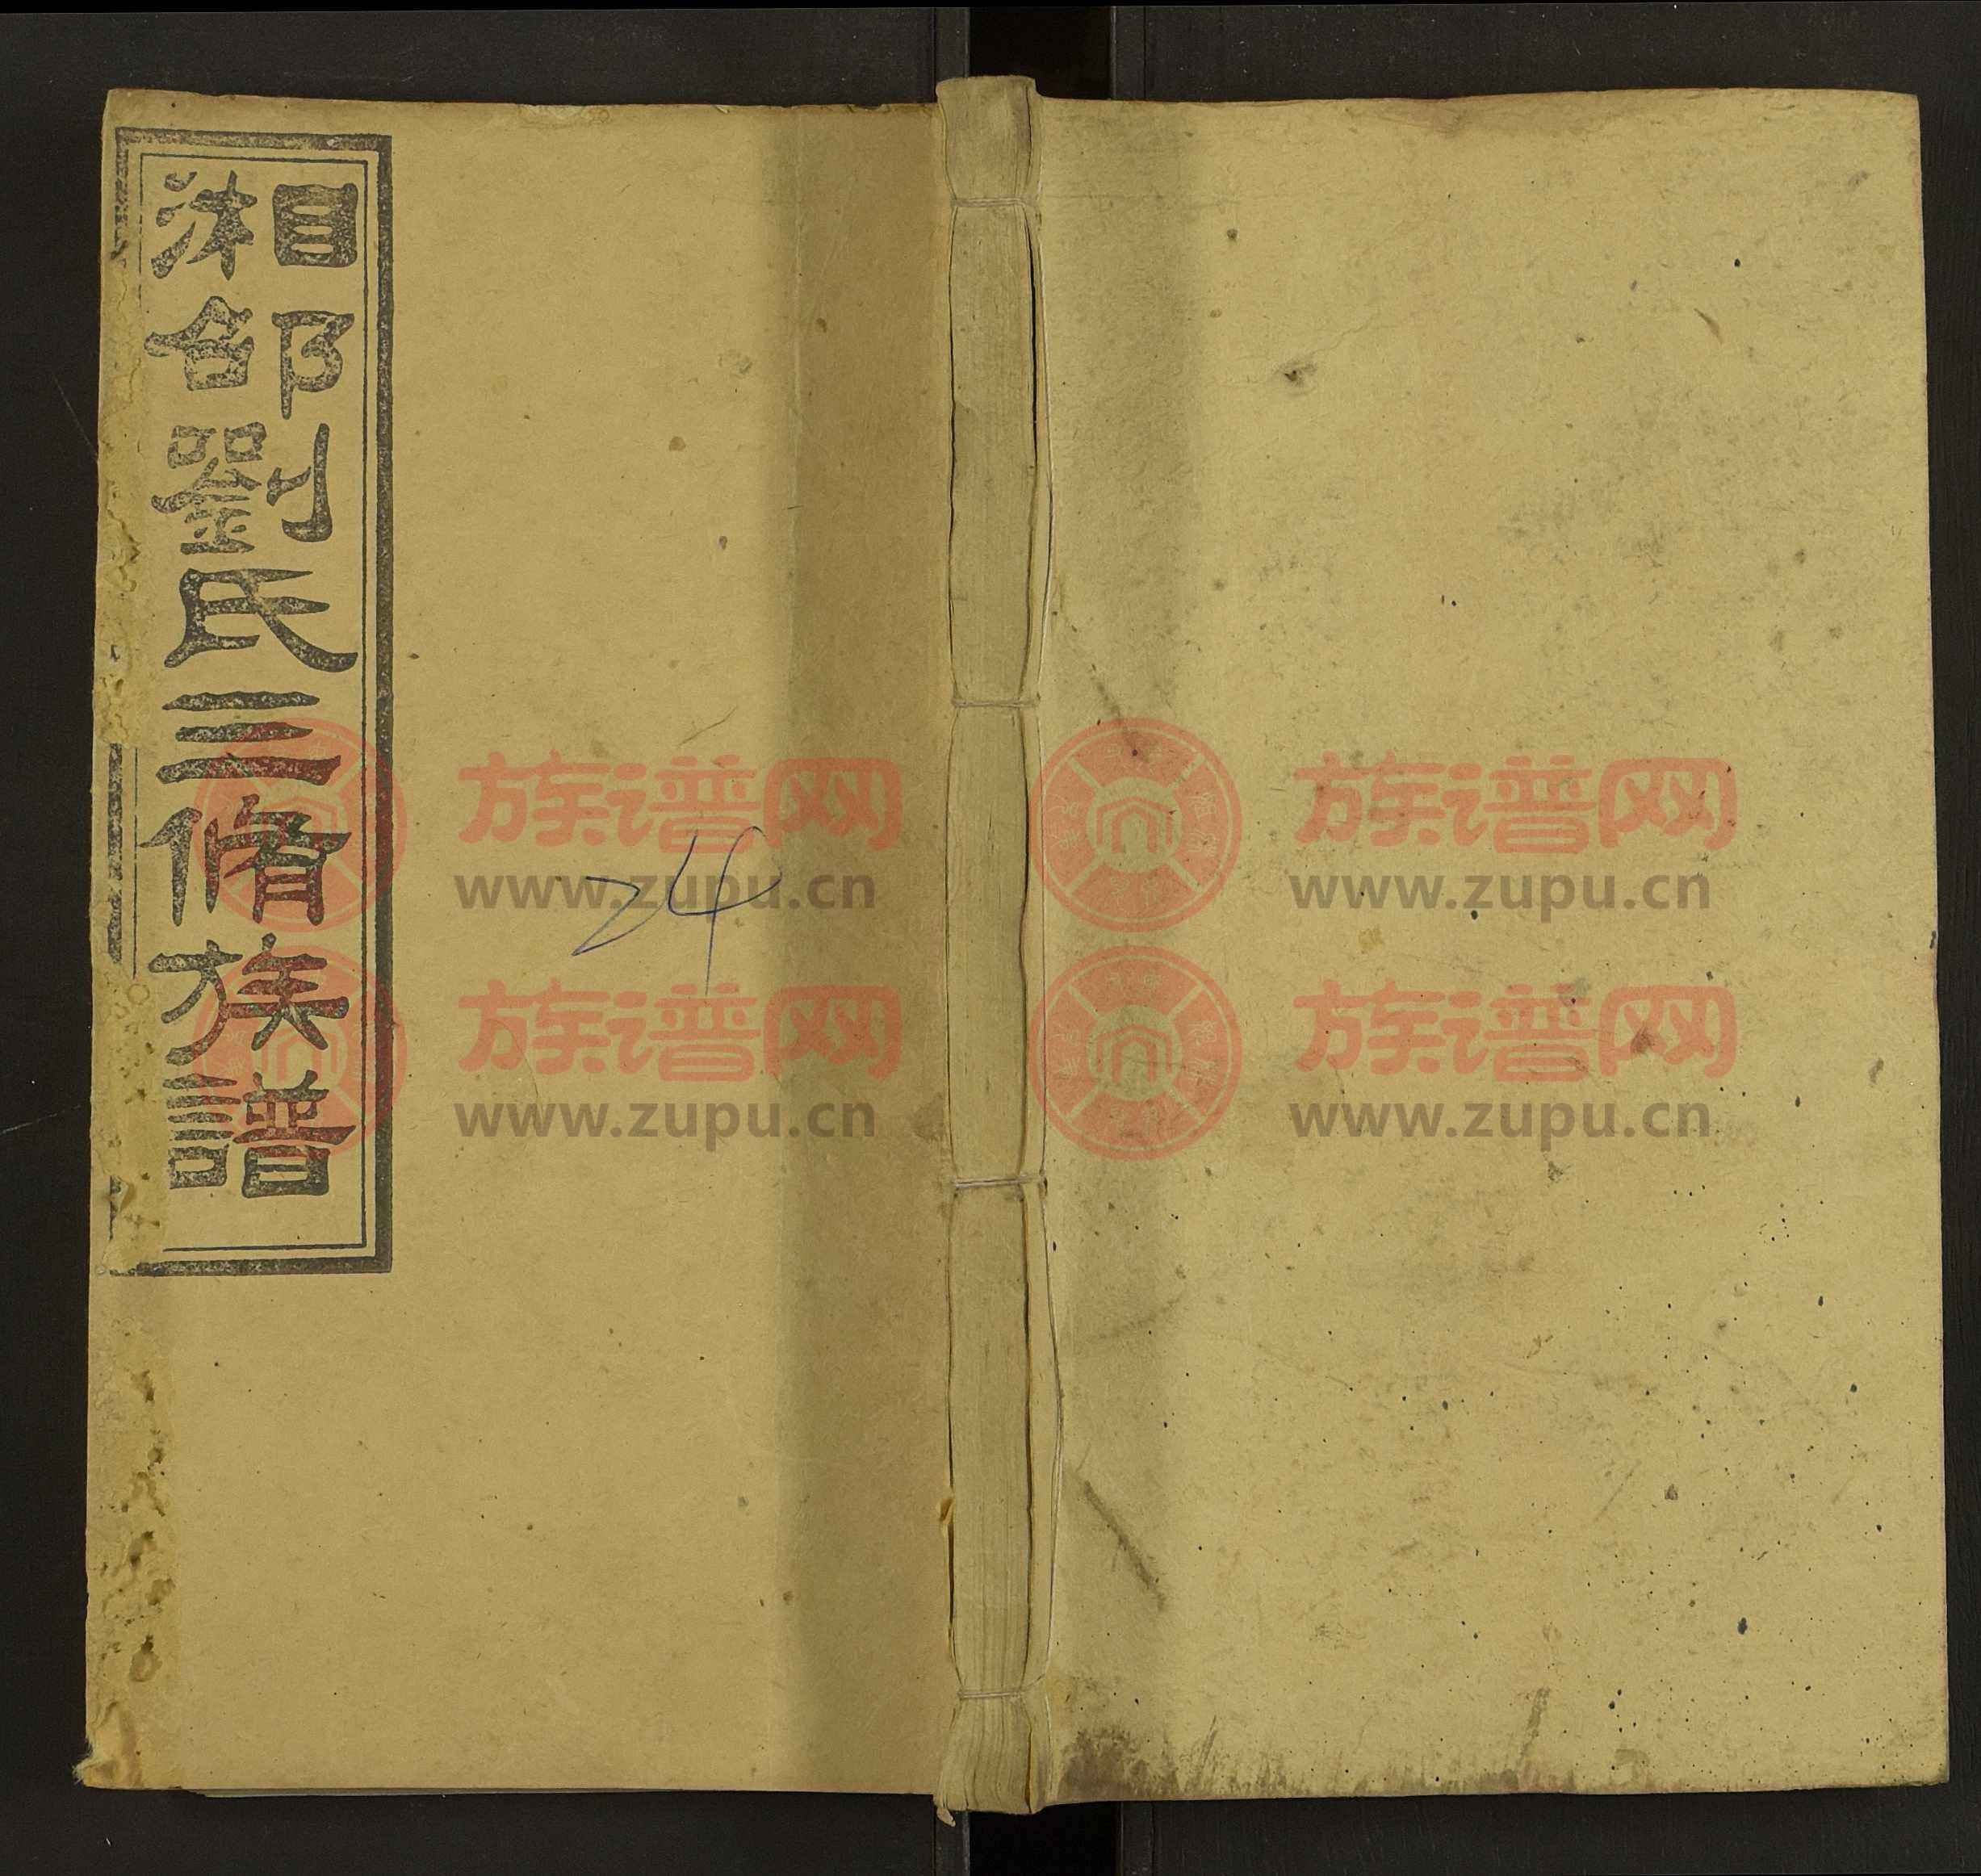 湘邵劉氏三脩族譜
24
族谱网
www.zupu.cn
族谱网
www.zupu.cn
族谱网
www.zupu.cn
族谱网
www.zupu.cn